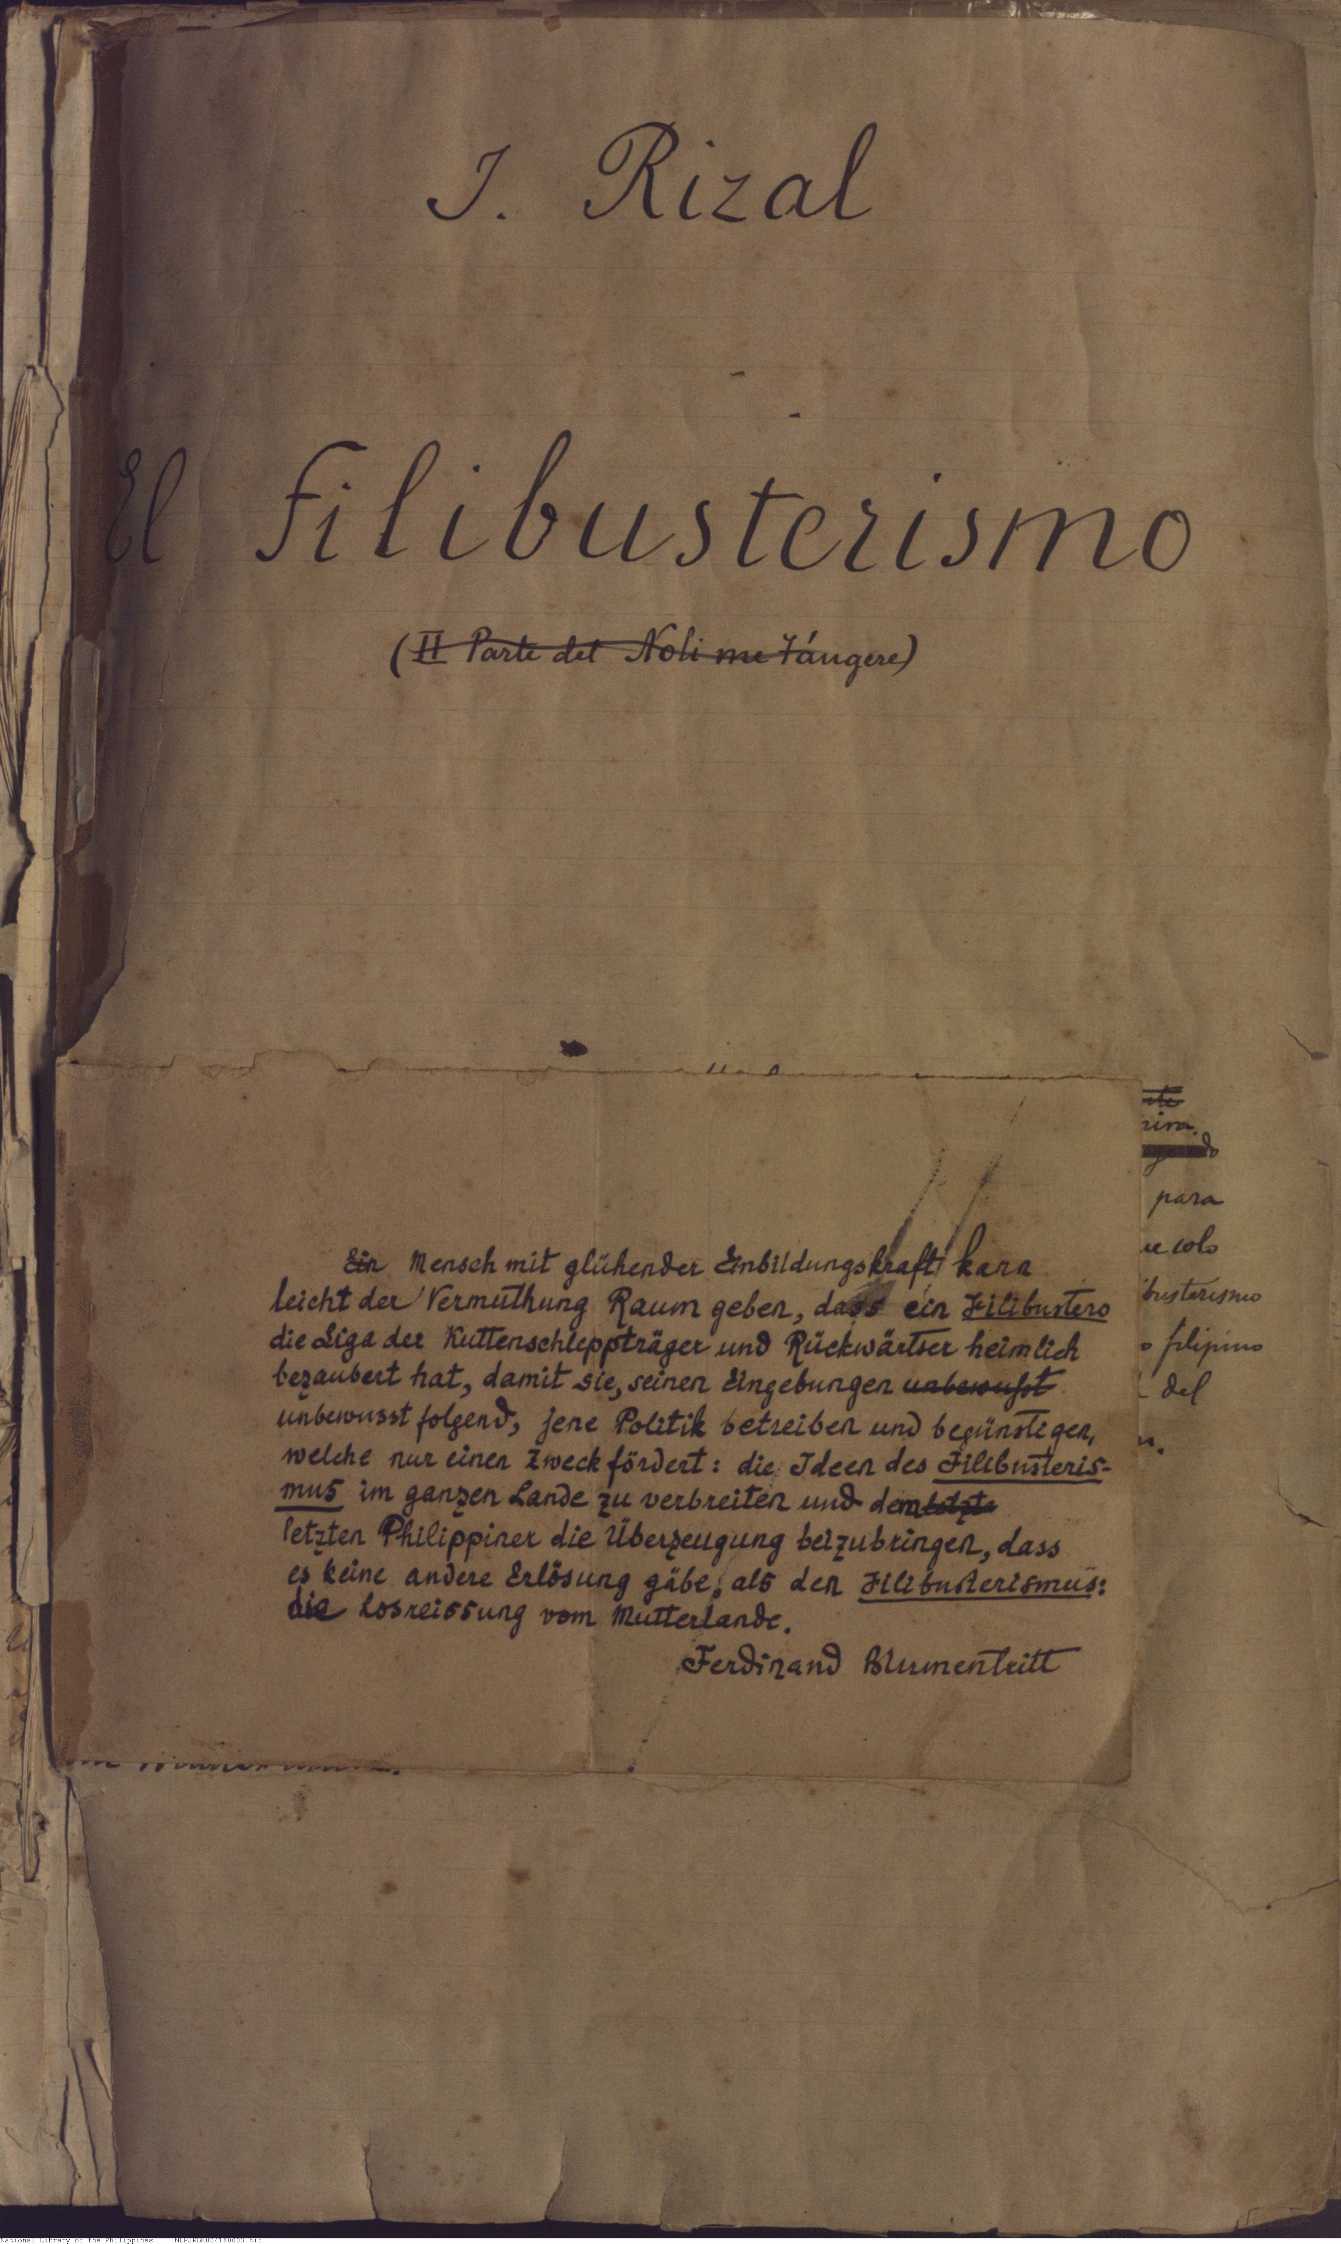 J. Rizal
El Filibusterismo
(II Parte del Noli me Tángere)
Ein Mensch mit glühender Einbildungskraft kann
leicht der Vermuthung Raum geben, dass ein Filibustero
die Liga der Kuttenschleppträger und Rückwärtser heimlich
bezaubert hat, damit sie, seinen Eingebungen unbewusst
unbewusst folgend, jene Politik betreiben und begünstigen,
welche nur einen Zweck fördert: die Ideen des Filibusteris-
mus im ganzen Lande zu verbreiten und dem letzte
letzten Philippiner die Überzeugung beizubringen, dass
es keine andere Erlösung gäbe, als den Filibusterismus:
die Losreissung vom Mutterlande.
Ferdinand Blumentritt
para
solo
busterismo
filipino
del
National Library of the Philippines